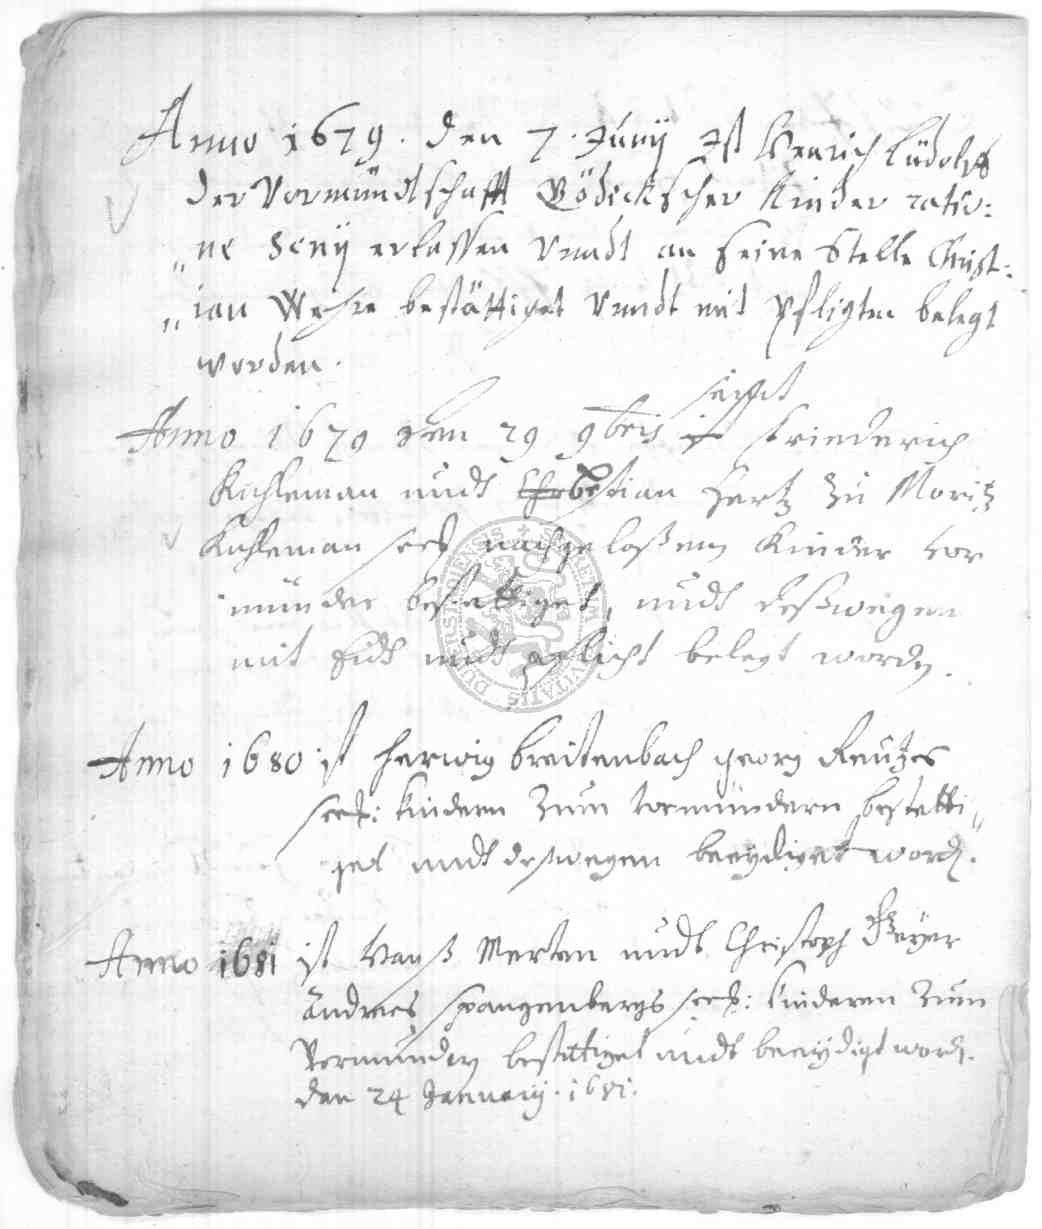 Anno 1679. den 7. Junij Ist Henrich Lüdolff
der Vormündtschafft Bödickscher Kinder ratio:
ne Senij erlassen Vnndt an seine Stelle Christ:
ian Wehre bestättiget Vnndt mit Pfligten belegt
worden.
Anno 1679 den 29 9bris ist Friederich
Kuhleman undt bastian Hertz zu Moritz
Kuhleman seel nachgelaßenen Kinder vor
münder bestettiget, undt deßwegen
mit Eidt undt pflicht belegt worden.
Anno 1680 ist Herwig breitenbach georg Reutzes
seel: kindern zum vormündern bestetti
get undt deßwegen beeydiget word.
Anno 1681 ist Hanß Merten undt Christoph Beyer
Andreas Spangenbergs seel: kinderen zum
Vormunden bestettiget undt beeydigt word.
den 24 Januarij. 1681.
SIGILLUM CIVITATIS DUDERSTADIENSIS